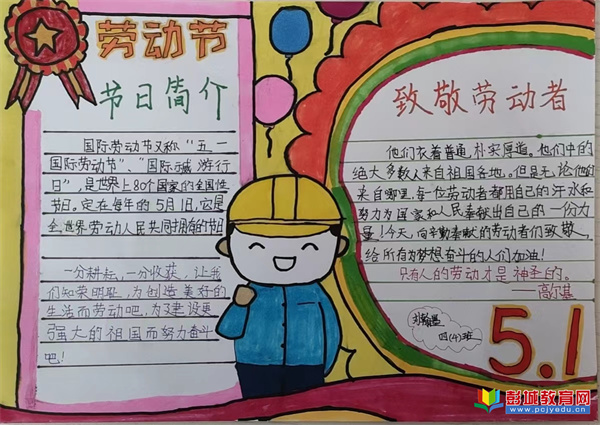 劳动节
节日简介
国际劳动节又称"五一
国际劳动节"、"国际示威游行
日",是世界上80个国家的全国性
节日。定在每年的5月1日。它是
全世界劳动人民共同拥有的节日
一分耕耘,一分收获,让我
们知荣明耻,为创造美好的
生活而劳动吧,为建设更
强大的祖国而努力奋斗
吧!
致敬劳动者
他们衣着普通,朴实厚道。他们中的
绝大多数人来自祖国各地。但是无论他们
来自哪里,每一位劳动者都用自己的汗水和
努力为国家和人民奉献出自己的一份力
量!今天,向辛勤奉献的劳动者们致敬,
给所有为梦想奋斗的人们加油!
只有人的劳动才是神圣的。
——高尔基
四(4)班
5.1
彭城教育网
www.pcjyedu.cn